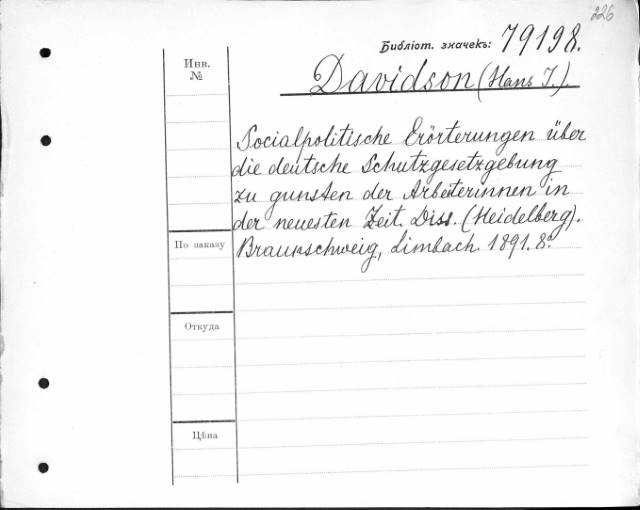 226
Библіот. значекъ: 79198.
Davidson (Hans J.).
Инв.
№
Socialpolitische Erörterungen über
die deutsche Schutzgesetzgebung
zu gunsten der Arbeiterinnen in
der neuesten Zeit. Diss. (Heidelberg).
Braunschweig, Limbach 1891. 8º.
По заказу
Откуда
Цѣна